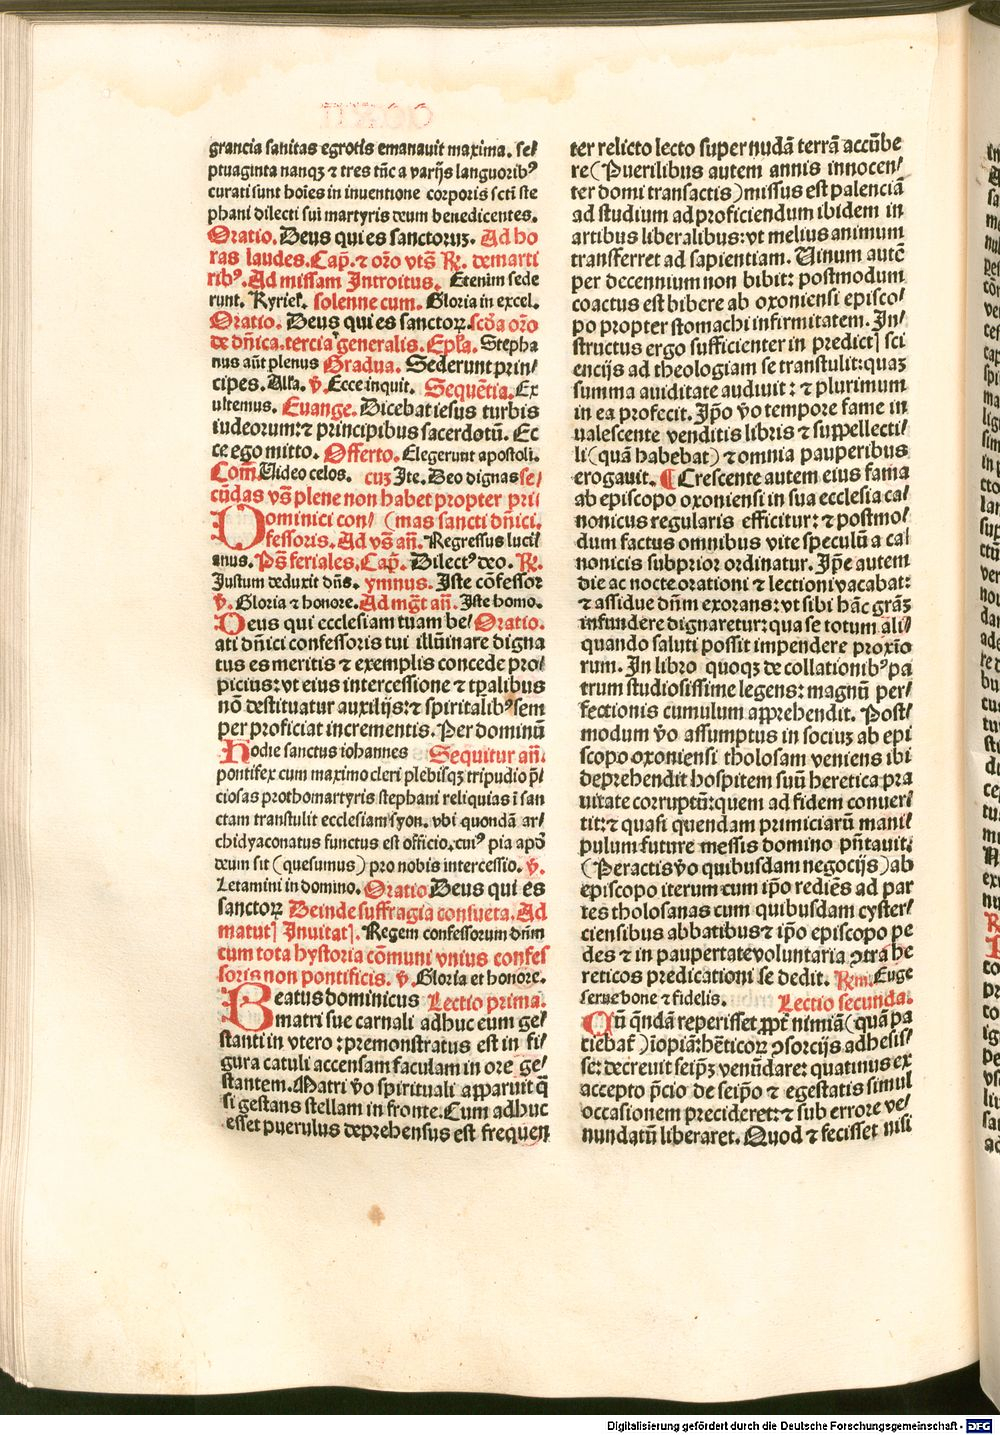 grancia sanitas egrotis emanauit maxima. se/
ptuaginta nanqȝ ⁊ tres tūc a varijs languoribꝰ
curati sunt hoīes in inuentione corporis scti ste
phani dilecti sui martyris deum benedicentes.
Oratio. Deus qui es sanctoruȝ. Ad ho
ras laudes. Cap̄. ⁊ oro vts̄ R̄. de marti
ribꝰ. Ad missam Introitus. Etenim sede
runt. Kyriel. solenne cum. Gloria in excel.
Oratio. Deus qui es sanctorꝝ. scd̄a orō
de dn̄ica. tercia generalis. Epl̄a. Stepha
nus aūt plenus Gradua. Sederunt prin/
cipes. Alla. v̄. Ecce inquit. Sequētia. Ex
ultemus. Euange. Dicebat iesus turbis
iudeorum: ⁊ principibus sacerdotū. Ec
ce ego mitto. Offerto. Elegerunt apostoli.
Com̄. Video celos. cuȝ Ite. Deo dignas se/
cūdas vs̄ plene non habet propter pri/
Dominici con/ (mas sancti dn̄ici.
fessoris. Ad vs̄ an̄. Regressus lucil
anus. Ps̄ feriales. Cap̄. Dilectꝰ deo. R̄.
Justum deduxit dn̄s. ymnus. Iste cōfessor
v̄. Gloria ⁊ honore. Ad mḡt an̄. Iste homo.
Deus qui ecclesiam tuam be/ Oratio.
ati dn̄ici confessoris tui illūinare digna
tus es meritis ⁊ exemplis concede pro/
picius: vt eius intercessione ⁊ tp̄alibus
nō destituatur auxilijs: ⁊ spiritalibꝰ sem
per proficiat incrementis. Per dominū
Hodie sanctus iohannes Sequitur an̄.
pontifex cum maximo cleri plebisqȝ tripudio p̄/
ciosas prothomartyris stephani reliquias ī san
ctam transtulit ecclesiam syon. vbi quondā ar/
chidyaconatus functus est officio. cuiꝰ pia apd̄
deum sit (quesumus) pro nobis intercessio. v̄.
Letamini in domino. Oratio Deus qui es
sanctorꝝ Deinde suffragia consueta. Ad
matut] Inuitat]. Regem confessorum dn̄m
cum tota hystoria cōmuni vnius confes
soris non pontificis. v̄. Gloria et honore.
Beatus dominicus Lectio prima.
matri sue carnali adhuc eum ge/
stanti in vtero: premonstratus est in fi/
gura catuli accensam faculam in ore ge/
stantem. Matri v̄o spirituali apparuit q̄
si gestans stellam in fronte. Cum adhuc
esset puerulus deprehensus est frequen
ter relicto lecto super nudā terrā accūbe
re (Puerilibus autem annis innocen/
ter domi transactis) missus est palenciā
ad studium ad proficiendum ibidem in
artibus liberalibus: vt melius animum
transferret ad sapientiam. Uinum autē
per decennium non bibit: postmodum
coactus est bibere ab oxoniensi episco/
po propter stomachi infirmitatem. In/
structus ergo sufficienter in predict] sci
encijs ad theologiam se transtulit: quaȝ
summa auiditate audiuit: ⁊ plurimum
in ea profecit. Ip̄o v̄o tempore fame in
ualescente venditis libris ⁊ suppellecti/
li (quā habebat) ⁊ omnia pauperibus
erogauit. ¶ Crescente autem eius fama
ab episcopo oxoniensi in sua ecclesia ca/
nonicus regularis efficitur: ⁊ postmo/
dum factus omnibus vite speculū a ca/
nonicis subprior ordinatur. Ip̄e autem
die ac nocte orationi ⁊ lectioni vacabat:
⁊ assidue dn̄m exorans: vt sibi hāc grāȝ
infundere dignaretur: qua se totum ali/
quando saluti possit impendere proxio
rum. In libro quoqȝ de collationibꝰ pa
trum studiosissime legens: magnū per/
fectionis cumulum apprehendit. Post/
modum v̄o assumptus in sociuȝ ab epi
scopo oxoniensi tholosam veniens ibi
deprehendit hospitem suū heretica pra
uitate corruptū: quem ad fidem conuer/
tit: ⁊ quasi quendam primiciarū mani/
pulum future messis domino pn̄tauit:
(Peractis v̄o quibusdam negocijs) ab
episcopo iterum cum ip̄o rediēs ad par
tes tholosanas cum quibusdam cyster/
ciensibus abbatibus ⁊ ip̄o episcopo pe
des ⁊ in paupertate voluntaria ↄtra he
reticos predicationi se dedit. R̄m. Euge
serue bone ⁊ fidelis. Lectio secunda.
Cū q̄ndā reperisset ꝓpt̄ nimiā (quā pa
tiebat̄) īopiā: hēticorꝝ ↄsorcijs adhesis/
se: decreuit seipȝ venūdare: quatinus ex
accepto p̄cio de seip̄o ⁊ egestatis simul
occasionem precideret: ⁊ sub errore ve/
nundatū liberaret. Quod ⁊ fecisset nisi
Digitalisierung gefördert durch die Deutsche Forschungsgemeinschaft - DFG